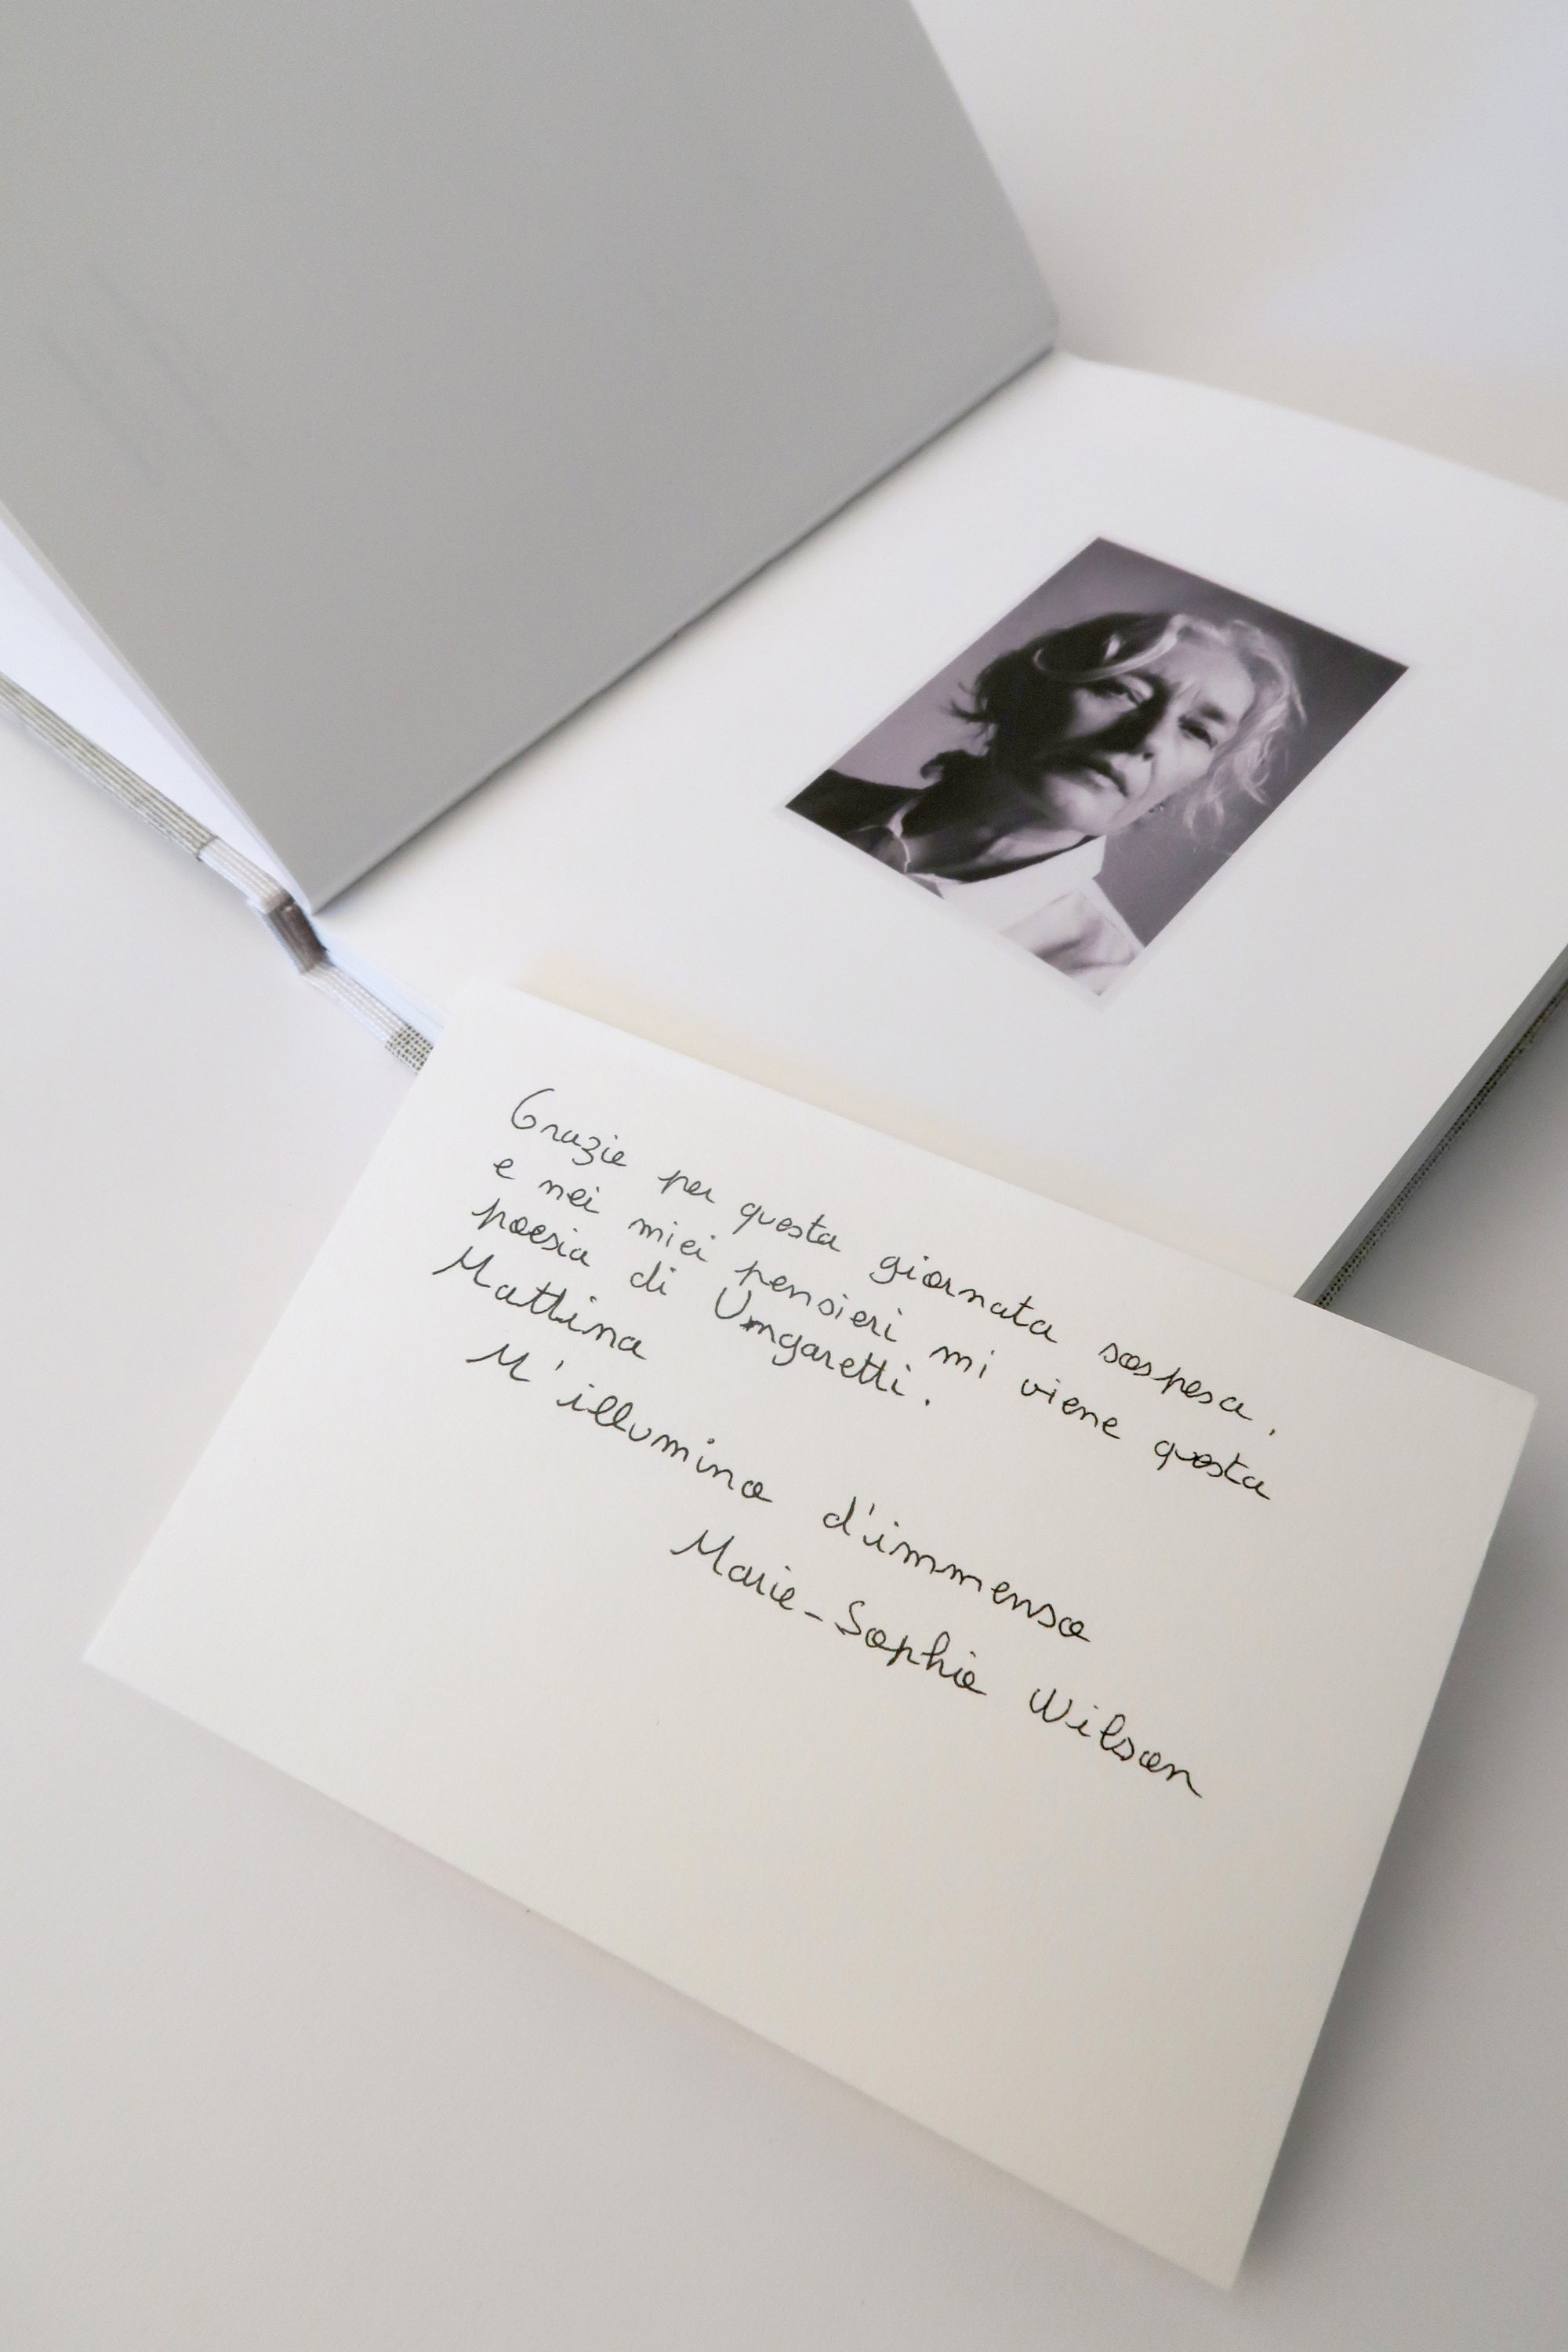 Grazie per questa giornata sospesa,
e nei miei pensieri mi viene questa
poesia di Ungaretti.
Mattina
M'illumino d'immenso
Marie-Sophie Wilson